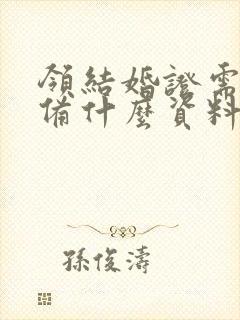 領結婚證需
備什麼資料
孫俊濤